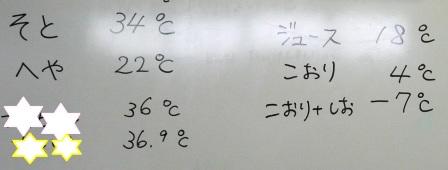 そと 34℃
へや 22℃
36℃
36.9℃
ジュース 18℃
こおり 4℃
こおり+しお -7℃